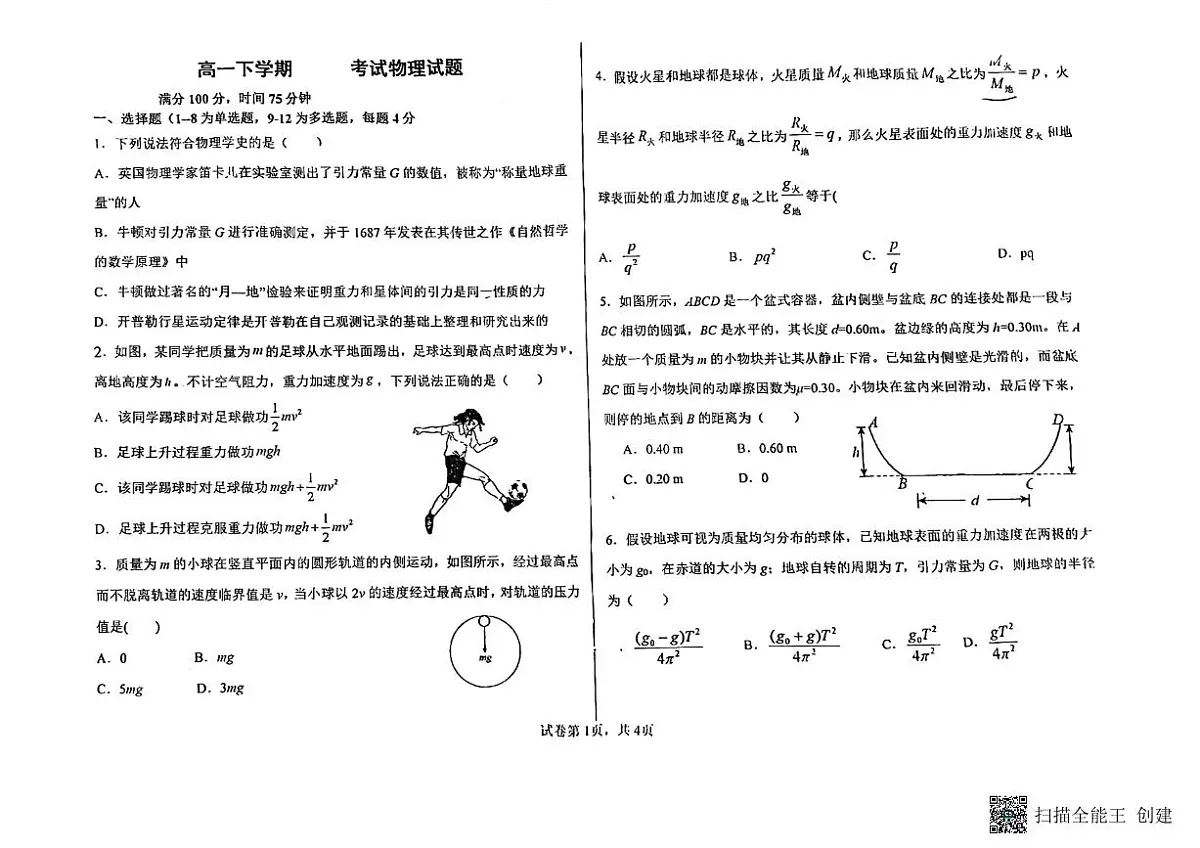 高一下学期 考试物理试题
满分 100 分，时间 75 分钟
一、选择题（1--8 为单选题，9-12 为多选题，每题 4 分
1．下列说法符合物理学史的是（ ）
A．英国物理学家笛卡儿在实验室测出了引力常量 G 的数值，被称为“称量地球重
量”的人
B．牛顿对引力常量 G 进行准确测定，并于 1687 年发表在其传世之作《自然哲学
的数学原理》中
C．牛顿做过著名的“月—地”检验来证明重力和星体间的引力是同一性质的力
D．开普勒行星运动定律是开普勒在自己观测记录的基础上整理和研究出来的
2．如图，某同学把质量为 m 的足球从水平地面踢出，足球达到最高点时速度为 v，
离地高度为 h。不计空气阻力，重力加速度为 g，下列说法正确的是（ ）
A．该同学踢球时对足球做功 1/2 mv²
B．足球上升过程重力做功 mgh
C．该同学踢球时对足球做功 mgh + 1/2 mv²
D．足球上升过程克服重力做功 mgh + 1/2 mv²
3．质量为 m 的小球在竖直平面内的圆形轨道的内侧运动，如图所示，经过最高点
而不脱离轨道的速度临界值是 v，当小球以 2v 的速度经过最高点时，对轨道的压力
值是( )
A．0 B．mg
C．5mg D．3mg
mg
4．假设火星和地球都是球体，火星质量 M火 和地球质量 M地 之比为 M火/M地 = p，火
星半径 R火 和地球半径 R地 之比为 R火/R地 = q，那么火星表面处的重力加速度 g火 和地
球表面处的重力加速度 g地 之比 g火/g地 等于(
A．p/q² B．pq² C．p/q D．pq
5．如图所示，ABCD 是一个盆式容器，盆内侧壁与盆底 BC 的连接处都是一段与
BC 相切的圆弧，BC 是水平的，其长度 d=0.60m。盆边缘的高度为 h=0.30m。在 A
处放一个质量为 m 的小物块并让其从静止下滑。已知盆内侧壁是光滑的，而盆底
BC 面与小物块间的动摩擦因数为μ=0.30。小物块在盆内来回滑动，最后停下来，
则停的地点到 B 的距离为（ ）
A．0.40 m B．0.60 m
C．0.20 m D．0
A D
h
B C
d
6．假设地球可视为质量均匀分布的球体，已知地球表面的重力加速度在两极的大
小为 g₀，在赤道的大小为 g；地球自转的周期为 T，引力常量为 G，则地球的半径
为（ ）
(g₀－g)T²/4π² B．(g₀+g)T²/4π² C．g₀T²/4π² D．gT²/4π²
试卷第 1页，共 4页
扫描全能王 创建